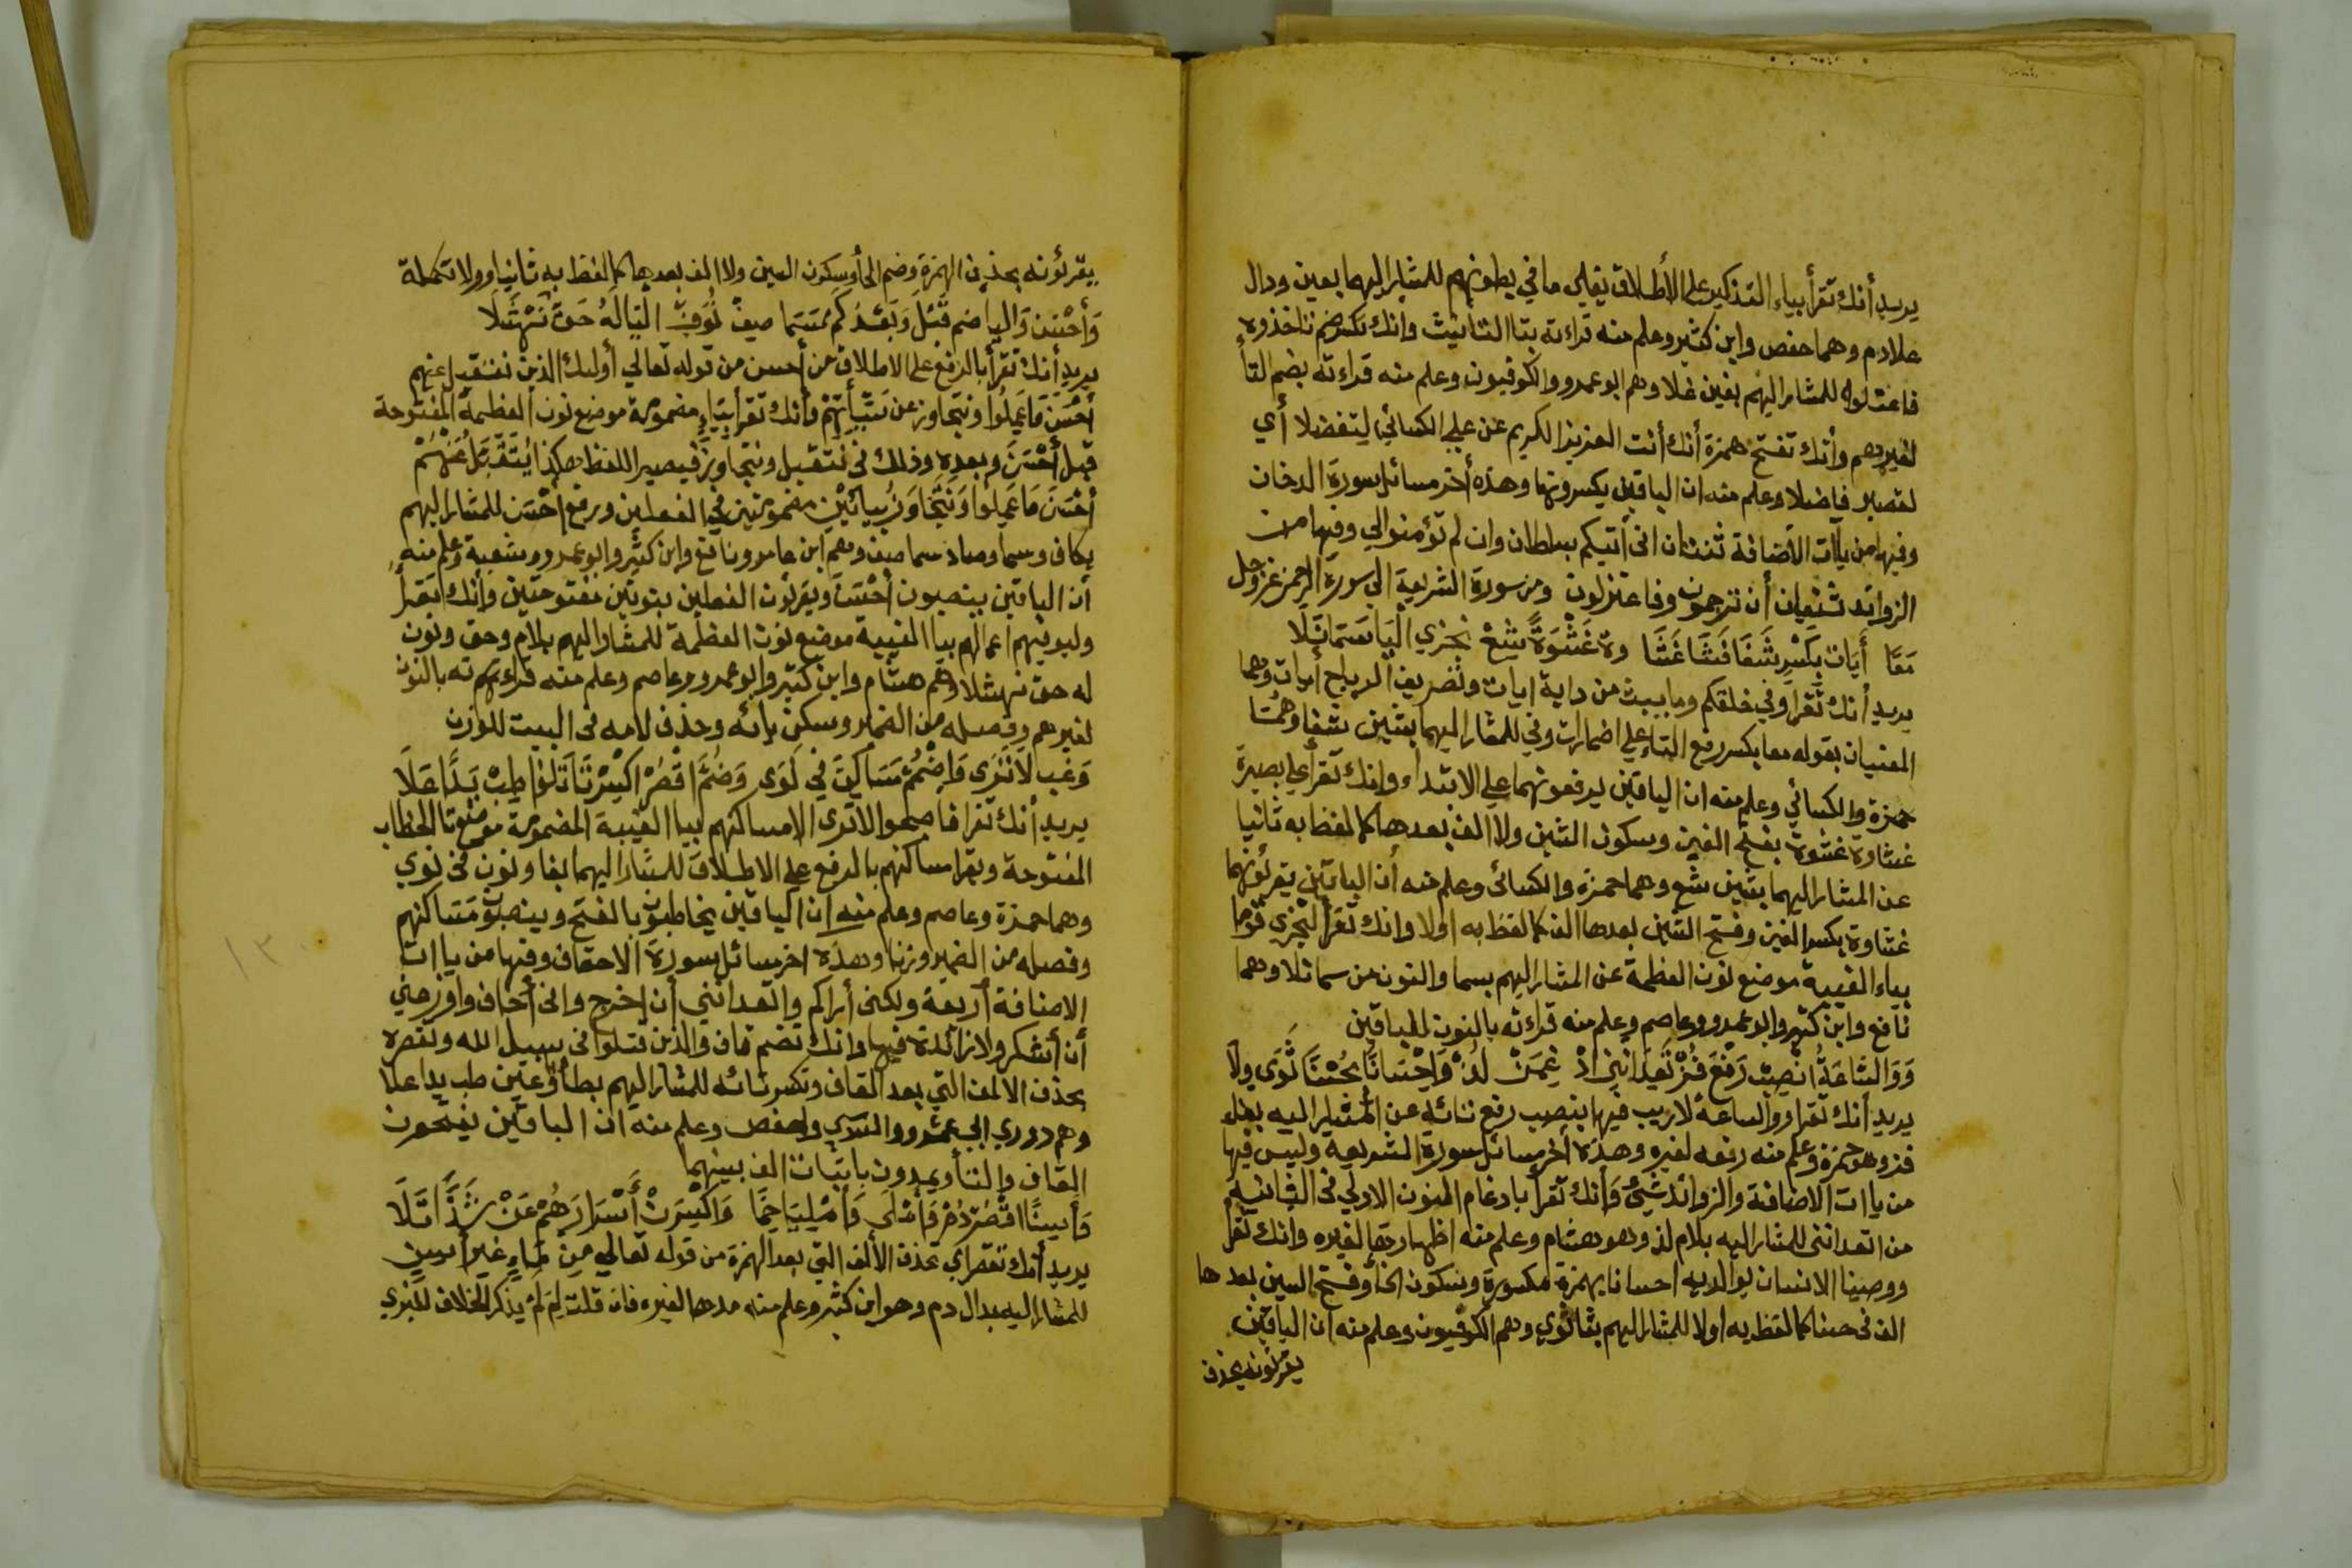 يريد أنك تقرأ بياء التذكير على الأطلاق يغلي ما في بطونهم للمشار اليهما بعين ودال
علا دم وهما حفص وابن كثير وعلم منه قراءته بتا التانيث وانك بكسرضم تا خذوه
فاعتلوه للمشار اليهم بغين غلا وهم ابو عمرو والكوفيون وعلم منه قراءته بضم التأ
لغيرهم وأنك تفتح همزة أنك أنت العزيز الكريم عن علي الكسائي لتفضلا أي
لتصير فاضلا وعلم منه ان الباقين يكسرونها وهذه أخر مسائل سورة الدخان
وفيها من يآات الأضافة ثنتان انى أتيكم بسلطان وان لم تؤمنوا لي وفيها من
الزوائد ثنتان أن ترجمون وفاعتزلون ومن سورة الشريعة الي سورة الرحمن عز وجل
مَعًا أَيَات بِكَسْرٍ شَفَا فَشَا غَشَا وة غَشْوَةً شَعْ نجزي الْيَا نَصٌّ سَمَا تَلَا
يريد أنك تقرا وفي خلقكم وما يبث من داية ايات وتصريف الرياح أيات وهما
المعنيان بقوله معا بكسر رفع التاء علي اضمارات وفي للمشار اليهما بشين شفا وهمسا
حمزة والكسائي وعلم منه ان الباقين يرفعونهما علي الابتداء وانك تقرأ علي بصيرة
غشاوة غشوة بفتح الغين وسكون الشين ولا الف بعدها كما لفظ به ثانيا
عن المشار اليهما بشين شع وهما حمزة والكسائى وعلم منه أن الباقين يقرئونهما
غشاوة بكسر الغين وفتح الشين بعدها الف كما لفظ به اولا وانك تقرأ ليجزي قوما
بياء الغيبة موضع لنون العظمة عن المشار اليهم بسما والنون من سما تلا وهما
نافع وابن كثير وابو عمرو وعاصم وعلم منه قراءته بالنون للباقين
وَوَالسَّاعَةُ انْصِبْ رَفْعَ فُزْ تَعِدَانِنِي ادْ غِمَنْ لُذْ وَاحْسَانًا حُسْنًا ثَوَى ولا
يريد أنك تقرا ووالساعة لا ريب فيها بنصب رفع تائه عن المشار اليه بفاء
فز وهو حمزة وعلم منه رفعه لغيره وهذه أخر مسائل سورة الشريعة وليس فيها
من ياات الاضافة والزوائد شيئ وأنك تقرأ بادغام النون الاولي فى الثانية
من اتعدانني للمشار اليه بلام لذ وهو هشام وعلم منه اظهارها لغيره وانك تقرأ
ووصينا الانسان بوالديه احسانا بهمزة مكسورة وبسكون الحأ وفتح السين بعدها
الف فى حسنا كما لفظ به اولا للمشار اليهم بثا ثوي وهم الكوفيون وعلم منه ان الباقين
يقرئونه بحذف
يقرئونه بحذف الهمزة وضم الحأ وسكون السين ولا الف بعدها كما لفظ به ثانيا وولا تكملة
وَأَحْسَنَ وَالْيا ضم قَبْلَ وَبَعْدُ كَمْ سَمَا صِفْ نُوَفِّ الْيَا لَهُ حَقُّ نَهْشَلَا
يريد أنك تقرأ بالرفع على الاطلاق من أحسن من قوله تعالي أولئك الذين نتقبل عنهم
أَحْسَنَ مَا عَمِلُوا ونتجاوز عن سَيِّئَاتِهِمْ فأنك تقرأ بياء مضمومة موضع نون العظمة المفتوحة
قبل أَحْسَنَ وبعده وذلك في نتقبل ونتجاوز فيصير اللفظ هكذا يُتَقَبَّلُ عَنْهُمْ
أَحْسَنُ مَا عَمِلُوا وَيُتَجَاوَزُ بيائين مضمومتين في الفعلين ورفع احسن للمشار اليهم
بكاف وسما وصاد سما صف وهم ابن عامر ونافع وابن كثير وابو عمرو وشعبة وعلم منه
أن الباقين ينصبون أَحْسَنَ ويقرئون الفعلين بنونين مفتوحتين وأنك تقرأ
وليوفيهم اعمالهم بيا الغيبة موضع نون العظمة للمشار اليهم بلام وحق ونون
له حق نهشلا وهم هشام وابن كثير وابو عمرو وعاصم وعلم منه قراءته بالنون
لغيرهم وفصله من الضمير وسكن يائه وحذف لامه فى البيت للوزن
وَغَيب لَا تَرَى وَاضْمُمْ مَسَاكِنَ فِي نَوَى وَضُمَّ اقْصُرْ اكْسِرْ تَا قَاتَلُوا طِبْ يَدًا عَلَا
يريد أنك تقرا فاصبحوا لا ترى الا مساكنهم بيا الغيبة المضمومة موضع تا الخطاب
المفتوحة وتقرا مساكنهم بالرفع علي الاطلاق للمشار اليهما بفا ونون في نوي
وهما حمزة وعاصم وعلم منه ان الباقين يخاطبون بالفتح وينصبون مَسَاكنهم
وفصله من الضمير وزنا وهذه اخر مسائل سورة الاحقاف وفيها من ياات
الاضافة أربعة ولكنى أراكم واتعدانني أن اخرج وانى أخاف واوزعني
أن أشكر ولا زائدة فيها وانك تضم قاف والذين قتلوا فى سبيل الله وتقصره
بحذف الالف التي بعد القاف وتكسر تائه للمشار اليهم بطأ وعين طب يدا علا
وهم دوري ابي عمرو والسوسي وحفص وعلم منه ان الباقين يفتحون
القاف والتأ ويمدون باثبات الف بينهما
وَآسِنًا اقْصُرْ دُمْ وَأُمْلَى وَأُمْلِيَا حِمًا وَاكْسِرَنْ أَسْرَارَهُمْ عَنْ شَذًّا تَلَا
يريد أنك تقصر اي تحذف الألف التي بعد الهمزة من قوله تعالي من مَاءٍ غير أسن
للمشار اليه بدال دم وهو ابن كثير وعلم منه مدها لغيره فان قلت لِمَ لَمْ يذكر الخلاف للبزي
١٣٠